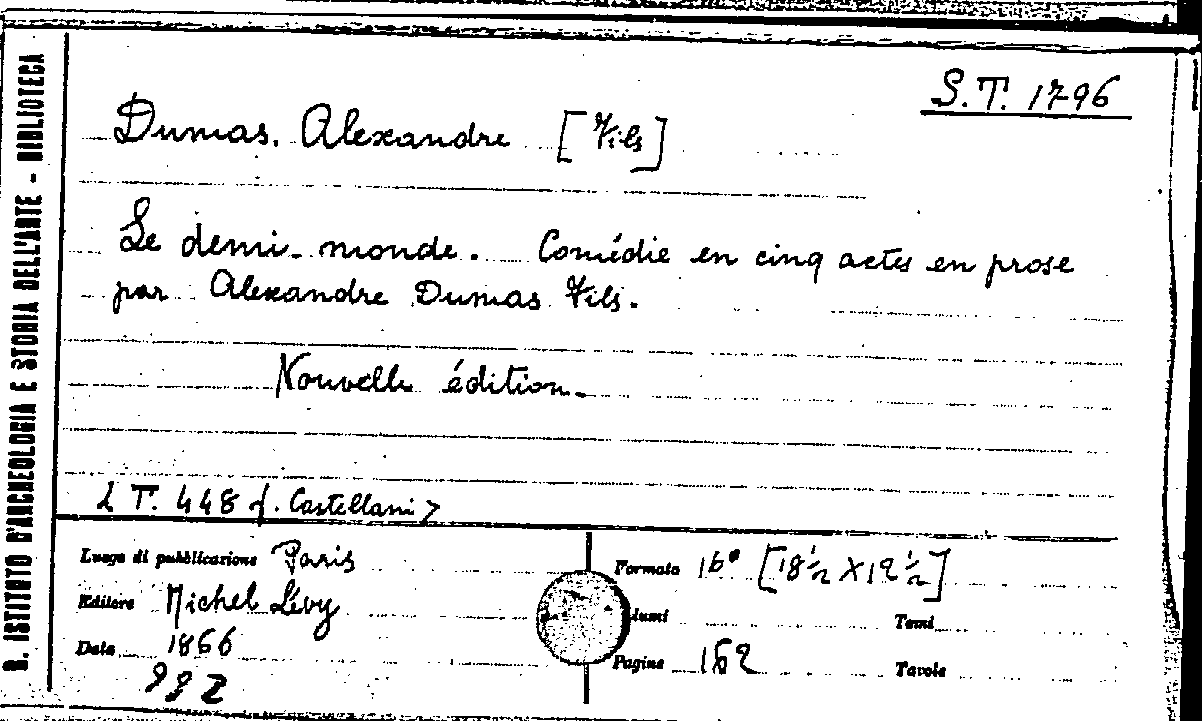 R. ISTITUTO D'ARCHEOLOGIA E STORIA DELL'ARTE - BIBLIOTECA
S.T. 1796
Dumas, Alexandre [Fils]
Le demi-monde. Comédie en cinq actes en prose
par Alexandre Dumas Fils.
Nouvelle édition.
< T. 448 f. Castellani >
Luogo di pubblicazione Paris
Formato 16° [18½ X 12½]
Editore Michel Lévy
lumi
Tomi
Data 1866
Pagine 162
Tavole
992